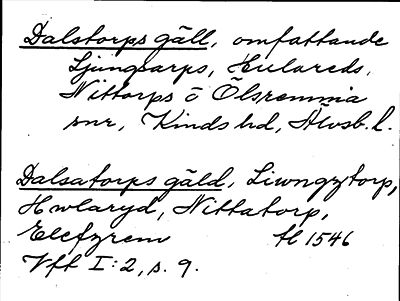 Dalstorps gäll, omfattande
Ljungsarps, Hulareds,
Nittorps o Ölsremma
snr, Kinds hd, Älvsb. l.
Dalsatorps gäld, Liwngztorp,
Hwlaryd, Nittatorp,
Elefzrem tl 1546
Vft I:2, s. 9.